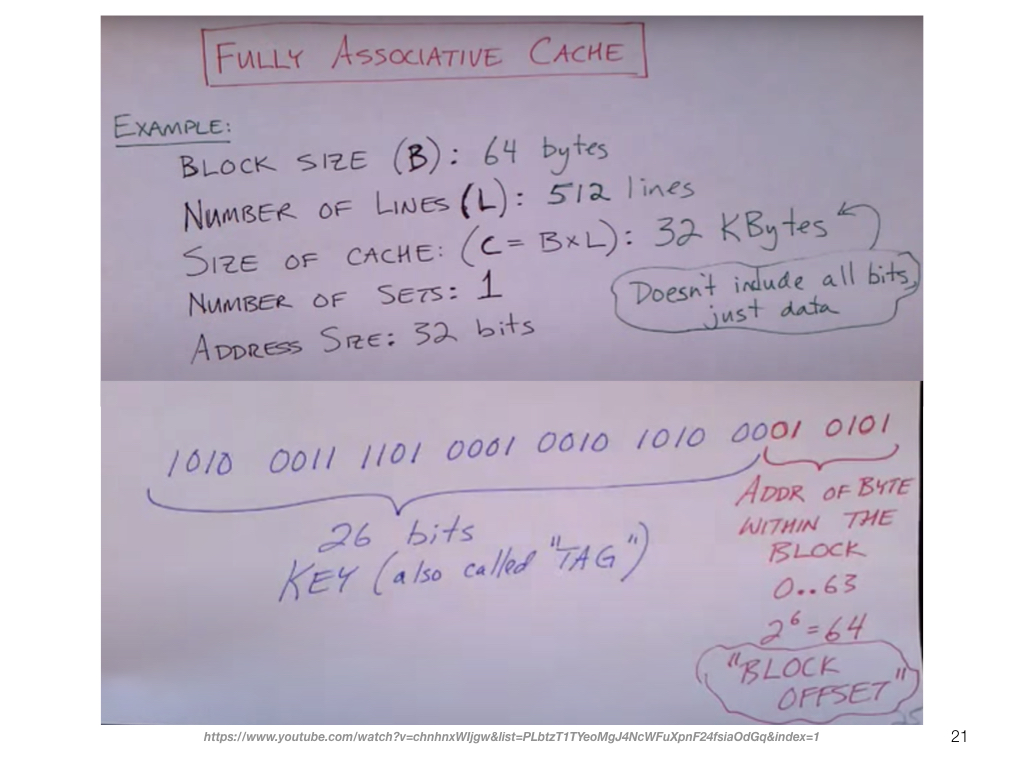 FULLY ASSOCIATIVE CACHE
EXAMPLE:
BLOCK SIZE (B): 64 bytes
NUMBER OF LINES (L): 512 lines
SIZE OF CACHE: (C = B×L): 32 KBytes
Doesn't include all bits,
just data
NUMBER OF SETS: 1
ADDRESS SIZE: 32 bits
1010 0011 1101 0001 0010 1010 0001 0101
26 bits
KEY (also called "TAG")
ADDR OF BYTE
WITHIN THE
BLOCK
0..63
2^6 = 64
"BLOCK
OFFSET"
https://www.youtube.com/watch?v=chnhnxWIjgw&list=PLbtzT1TYeoMgJ4NcWFuXpnF24fsiaOdGq&index=1
21